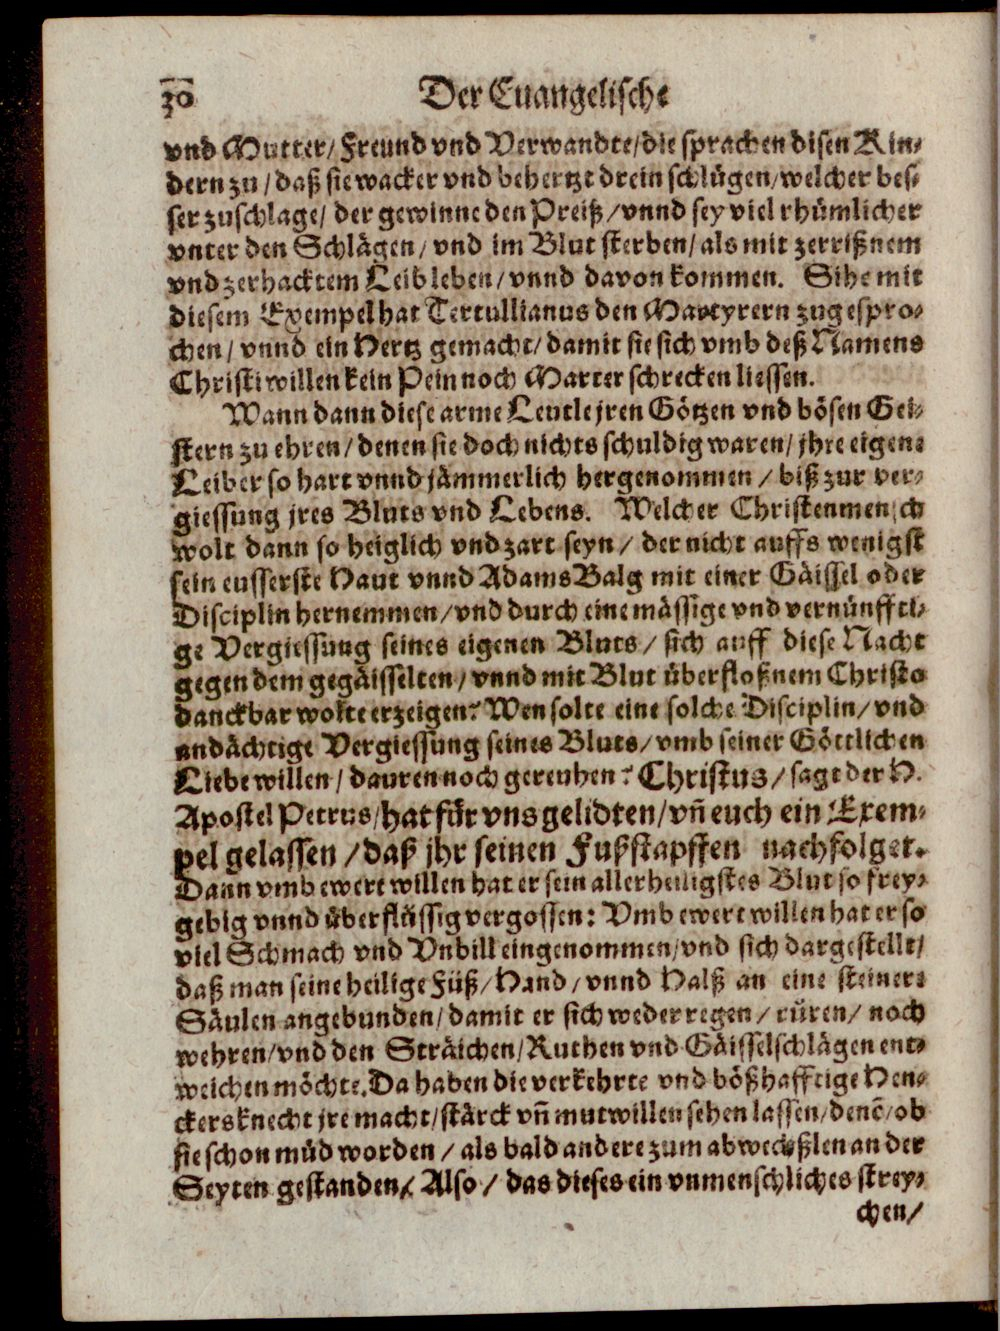 30 Der Euangelische
vnd Mutter/ Freund vnd Verwandte/ die sprachen disen Kin-
dern zu/ daß sie wacker vnd behertzt drein schlügen/ welcher bes-
ser zuschlage/ der gewinne den Preiß/ vnnd sey viel rhümlicher
vnter den Schlägen/ vnd im Blut sterben/ als mit zerrißnem
vnd zerhacktem Leib leben/ vnnd davon kommen. Sihe mit
diesem Exempel hat Tertullianus den Martyrern zugespro-
chen/ vnnd ein Hertz gemacht/ damit sie sich vmb deß Namens
Christi willen kein Pein noch Marter schrecken liessen.
Wann dann diese arme Leutle jren Götzen vnd bösen Gei-
stern zu ehren/ denen sie doch nichts schuldig waren/ jhre eigene
Leiber so hart vnnd jämmerlich hergenommen/ biß zur ver-
giessung jres Bluts vnd Lebens. Welcher Christenmensch
wolt dann so heiglich vnd zart seyn/ der nicht auffs wenigst
sein eusserste Haut vnnd Adams Balg mit einer Gäissel oder
Disciplin hernemmen/ vnd durch eine mässige vnd vernünffti-
ge Vergiessung seines eigenen Bluts/ sich auff diese Nacht
gegen dem gegäisselten/ vnnd mit Blut überfloßnem Christo
danckbar wolte erzeigen? Wen solte eine solche Disciplin/ vnd
andächtige Vergiessung seines Bluts/ vmb seiner Göttlichen
Liebe willen/ dauren noch gereuhen? Christus/ sagt der H.
Apostel Petrus/ hat für vns gelidten/ vñ euch ein Exem-
pel gelassen/ daß jhr seinen Fußstapffen nachfolget.
Dann vmb ewert willen hat er sein allerheiligstes Blut so frey-
gebig vnnd überflüssig vergossen: Vmb ewert willen hat er so
viel Schmach vnd Vnbill eingenommen/ vnd sich dargestellt/
daß man seine heilige Füß/ Händ/ vnnd Halß an eine steinere
Säulen angebunden/ damit er sich weder regen/ rüren/ noch
wehren/ vnd den Sträichen/ Ruthen vnd Gäisselschlägen ent-
weichen möchte. Da haben die verkehrte vnd bößhafftige Hen-
ckersknecht jre macht/ stärck vñ mutwillen sehen lassen/ denē/ ob
sie schon müd worden/ als bald andere zum abwechßlen an der
Seyten gestanden/ Also/ das dieses ein vnmenschliches strey-
chen/